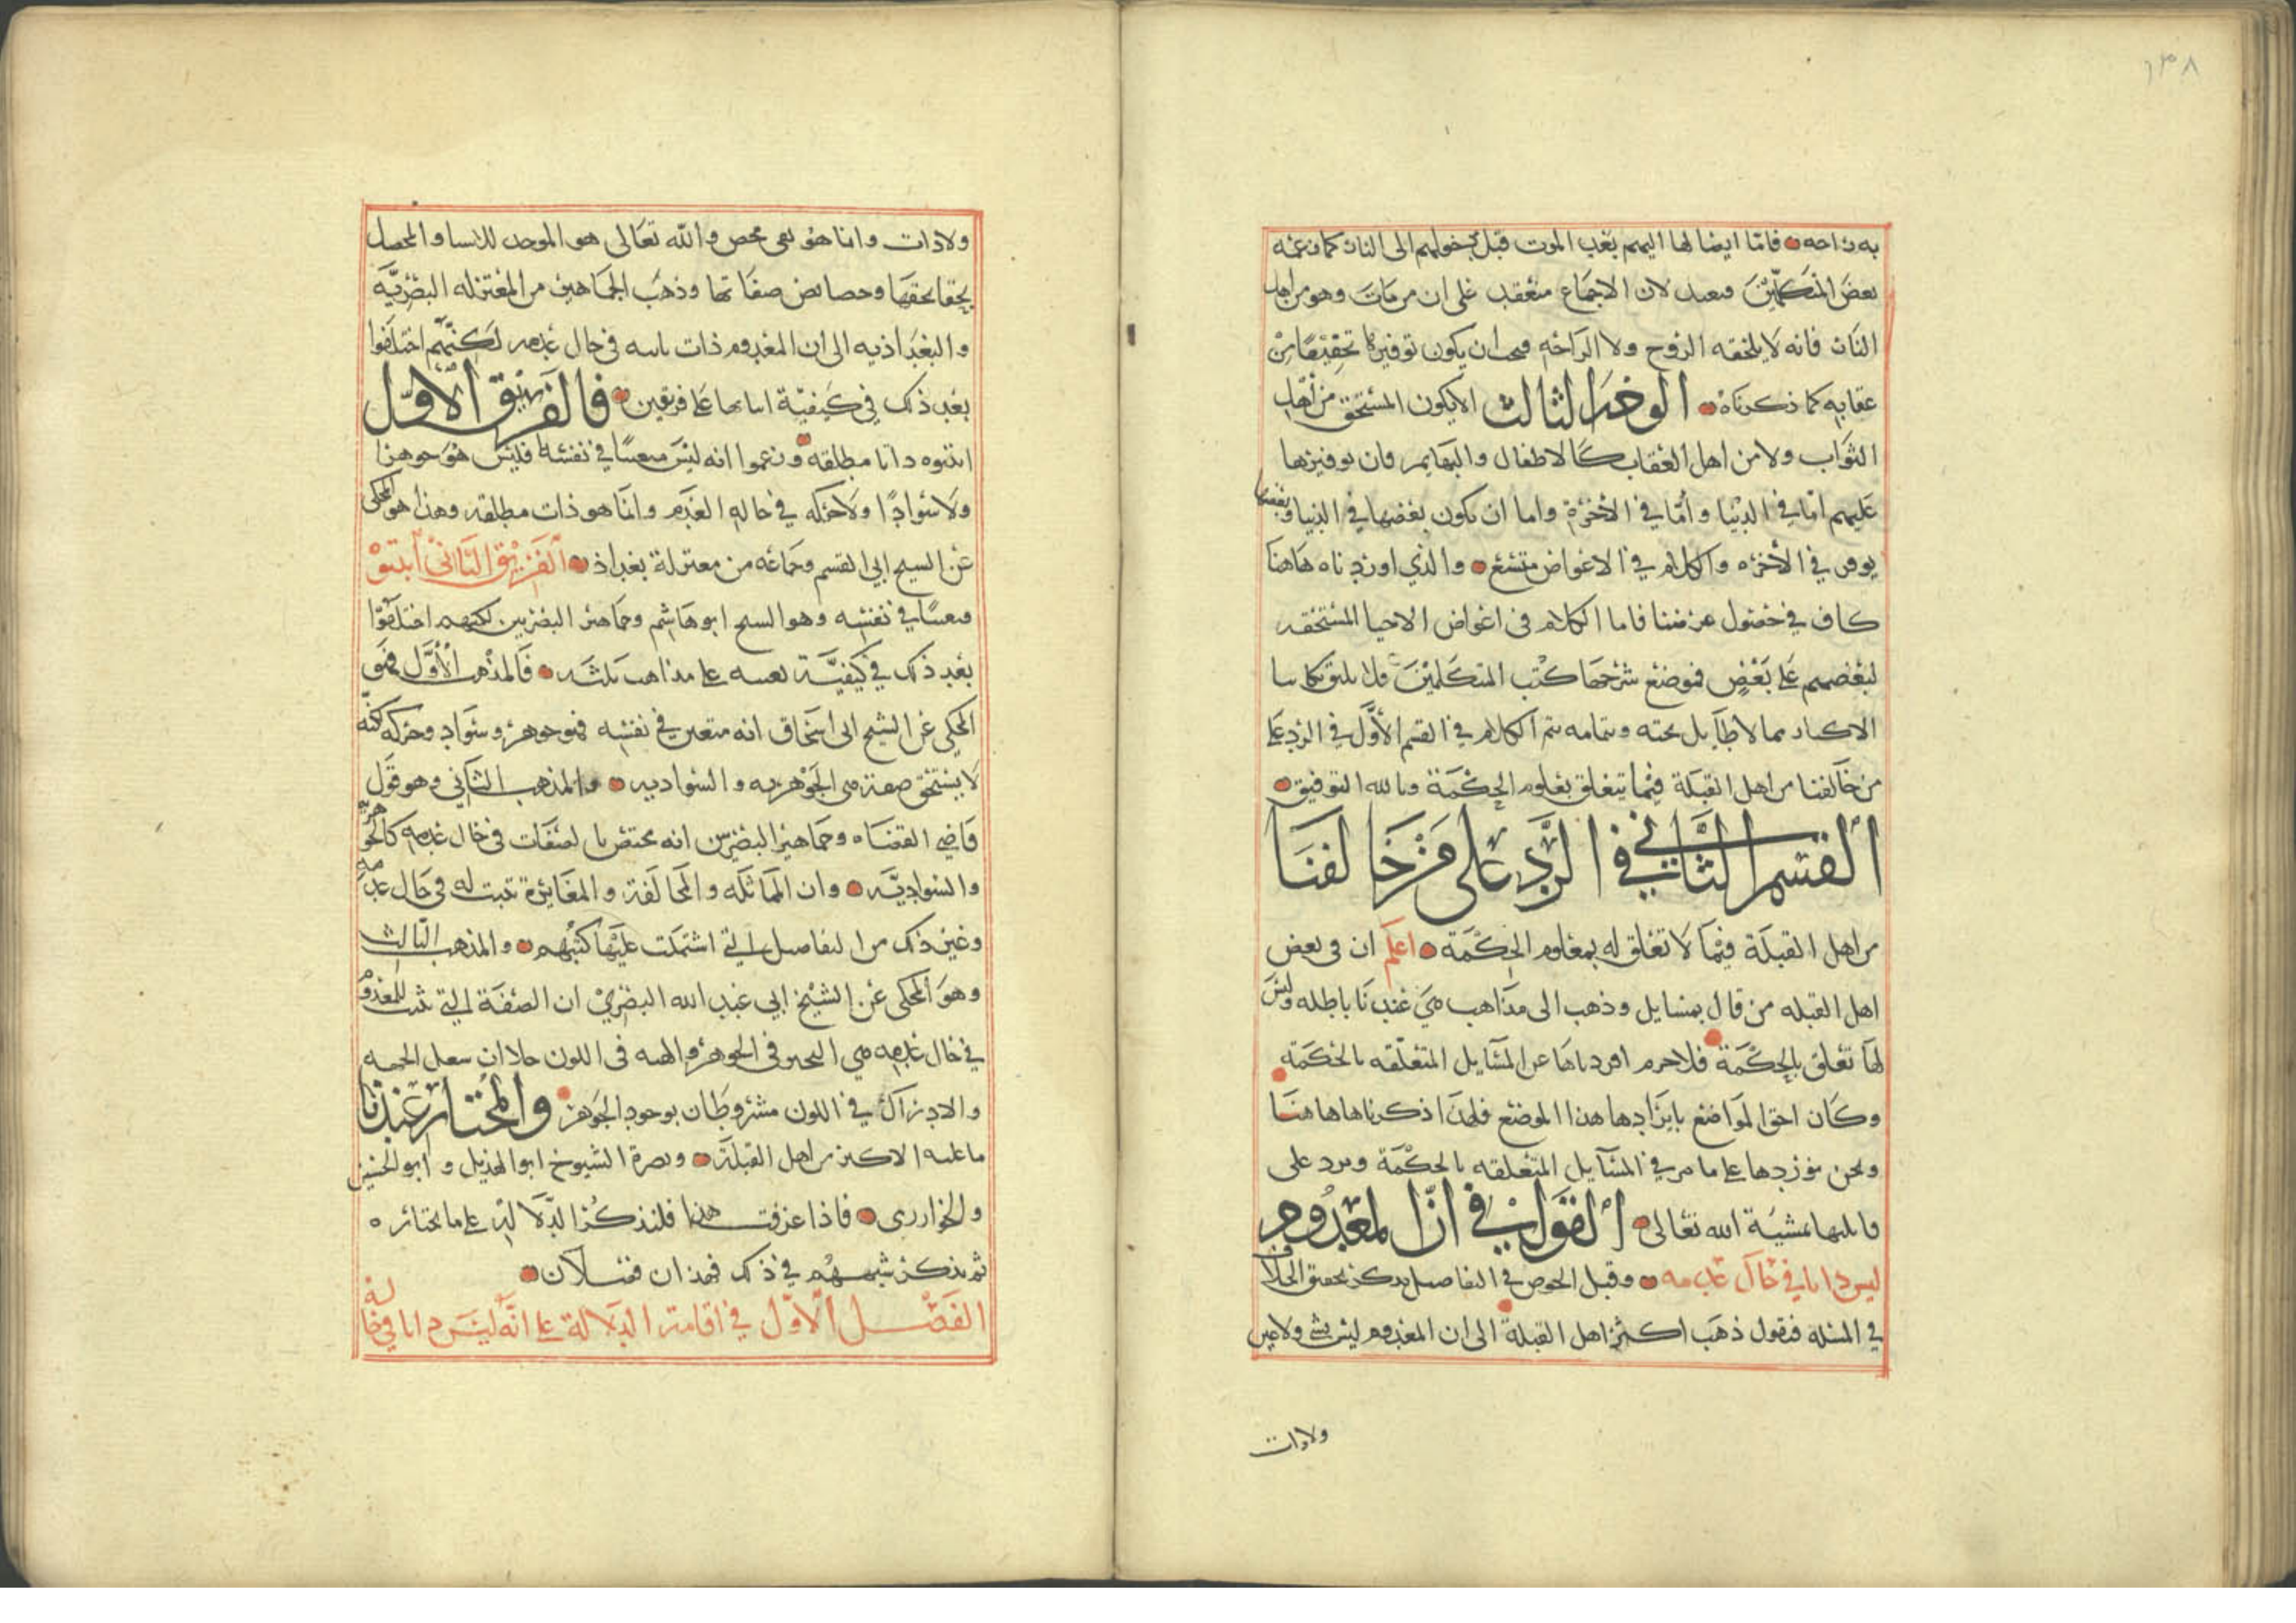 ١٣٨
به راحه فاما ايصالها اليهم بعد الموت قبل دخولهم الى النار كما زعمه
بعض المتكلمين فبعيد لان الاجماع منعقد على ان من مات وهو من اهل
النار فانه لا يلحقه الروح ولا الراحه فيجب ان يكون توفيرها تخفيفا من
عقابه كما ذكرناه الوجه الثالث الا يكون المستحق من اهل
الثواب ولا من اهل العقاب كالاطفال والبهايم فان توفيرها
عليهم اما في الدنيا واما في الاخرة واما ان يكون بعضها في الدنيا وبعضها
يوفر في الاخره والكلام في الاعواض متسع والذي اوردناه هاهنا
كاف في حصول غرضنا فاما الكلام في اعواض الاحيا المستحقه
لبعضهم على بعض فموضع شرحها كتب المتكلمين ولا يليق بكتابنا
الاكثار مما لا طايل تحته وبتمامه يتم الكلام في القسم الاول في الرد على
من خالفنا من اهل القبلة فيما يتعلق بعلوم الحكمة وبالله التوفيق
القسم الثاني في الرد على من خالفنا
من اهل القبلة فيما لا تعلق له بعلوم الحكمة اعلم ان في بعض
اهل القبله من قال بمسايل وذهب الى مذاهب هي عندنا باطله وليس
لها تعلق بالحكمة فلا جرم افردناها عن المسايل المتعلقه بالحكمة
وكان احق المواضع بايرادها هذا الموضع فلهذا ذكرناها هاهنا
ونحن نوردها على ما مر في المسايل المتعلقه بالحكمة ونرد على
قايلها بمشية الله تعالى القول في ان المعدوم
ليس ذاتا في حال عدمه وقبل الخوض في التفاصيل نذكر تحقيق الخلاف
في المسئلة فنقول ذهب اكثر اهل القبلة الى ان المعدوم ليس بشي ولا عين
ولا ذات
ولا ذات وانما هو نفي محض والله تعالى هو الموجد للاشيا والمحصل
لحقايقها وخصايص صفاتها وذهب الجماهير من المعتزله البصرية
والبغداذيه الى ان المعدوم ذات ثابته في حال عدمه لكنهم اختلفوا
بعد ذلك في كيفية اثباتها على فريقين فالفريق الاول
اثبتوه ذاتا مطلقه وزعموا انه ليس متعينا في نفسه فليس هو جوهرا
ولا سوادا ولا حركه في حاله العدم وانما هو ذات مطلقه وهذا هو المحكي
عن الشيخ ابي القسم وجماعه من معتزلة بغداذ الفريق الثاني اثبتوه
متعينا في نفسه وهو الشيخ ابو هاشم وجماهير البصريين لكنهم اختلفوا
بعد ذلك في كيفية تعينه على مذاهب ثلثه فالمذهب الاول فهو
المحكي عن الشيخ ابي اسحاق انه متعين في نفسه فهو جوهر وسواد وحركه لكنه
لا يستحق صفة هي الجوهريه والسواديه والمذهب الثاني وهو قول
قاضي القضاه وجماهير البصريين انه مختص بالصفات في حال عدمه كالجوهرية
والسوادية وان المماثلة والمخالفة والمغايرة تثبت له في حال عدمه
وغير ذلك من التفاصيل التي اشتملت عليها كتبهم والمذهب الثالث
وهو المحكي عن الشيخ ابي عبد الله البصري ان الصفة التي تثبت للمعدوم
في حال عدمه هي التحيز في الجوهر والهيئه في اللون خلا ان شغل الجهه
والادراك في اللون مشروطان بوجود الجوهر والمختار عندنا
ما عليه الاكثر من اهل القبلة ونصره الشيوخ ابو الهذيل وابو الحسين
والخوارزمي فاذا عرفت هذا فلنذكر الدلالة على ما نختاره
ثم نذكر شبههم في ذلك فهذان فصلان
الفصل الاول في اقامة الدلالة على انه ليس ذاتا في حالة